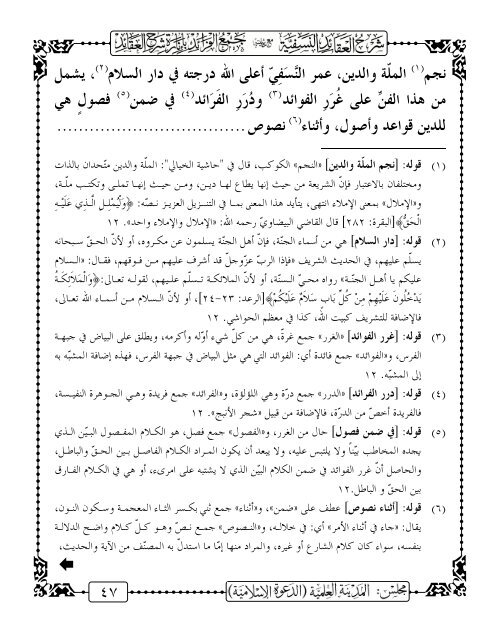 شرح العقائد النسفية مع جمع الفرائد بإنارة شرح العقائد
نجم(١) الملّة والدين، عمر النَّسَفِيّ أعلى الله درجته في دار السلام(٢)، يشمل
من هذا الفنّ على غُرَرِ الفوائد(٣) ودُرَرِ الفَرَائد(٤) في ضمن(٥) فصولٍ هي
للدين قواعد وأصول، وأثناء(٦) نصوص..................................
(١) قوله: [نجم الملّة والدين] «النجم» الكوكب، قال في "حاشية الخيالي": الملّة والدين متّحدان بالذات
ومختلفان بالاعتبار فإنّ الشريعة من حيث إنها يطاع لها دين، ومن حيث إنها تملى وتكتب ملّة،
و«الإملال» بمعنى الإملاء انتهى، يتأيد هذا المعنى بما في التنزيل العزيز نصّه: ﴿وَلْيُمْلِلِ الَّذِي عَلَيْهِ
الْحَقُّ﴾[البقرة: ٢٨٢] قال القاضي البيضاوي رحمه الله: «الإملال والإملاء واحد». ١٢
(٢) قوله: [دار السلام] هي من أسماء الجنّة، فإنّ أهل الجنّة يسلمون عن مكروه، أو لأنّ الحقّ سبحانه
يسلّم عليهم، في الحديث الشريف «فإذا الربّ عزّوجلّ قد أشرف عليهم من فوقهم، فقال: «السلام
عليكم يا أهل الجنّة» رواه محيّ السنّة، أو لأنّ الملائكة تسلّم عليهم، لقوله تعالى:﴿وَالْمَلَائِكَةُ
يَدْخُلُونَ عَلَيْهِمْ مِنْ كُلِّ بَابٍ سَلَامٌ عَلَيْكُمْ﴾[الرعد: ٢٣-٢٤]، أو لأنّ السلام من أسماء الله تعالى،
فالإضافة للتشريف كبيت الله، كذا في معظم الحواشي. ١٢
(٣) قوله: [غرر الفوائد] «الغرر» جمع غرةّ، هي من كلّ شيء أوّله وأكرمه، ويطلق على البياض في جبهة
الفرس، و«الفوائد» جمع فائدة أي: الفوائد التي هي مثل البياض في جبهة الفرس، فهذه إضافة المشبّه به
إلى المشبّه. ١٢
(٤) قوله: [درر الفرائد] «الدرر» جمع درّة وهي اللؤلؤة، و«الفرائد» جمع فريدة وهي الجوهرة النفيسة،
فالفريدة أخصّ من الدرّة، فالإضافة من قبيل «شجر الأتبج». ١٢
(٥) قوله: [في ضمن فصول] حال من الغرر، و«الفصول» جمع فصل، هو الكلام المفصول البيّن الذي
يجده المخاطب بيّناً ولا يلتبس عليه، ولا يبعد أن يكون المراد الكلام الفاصل بين الحقّ والباطل،
والحاصل أنّ غرر الفوائد في ضمن الكلام البيّن الذي لا يشتبه على امرىء، أو هي في الكلام الفارق
بين الحقّ و الباطل.١٢
(٦) قوله: [أثناء نصوص] عطف على «ضمن»، و«أثناء» جمع ثني بكسر الثاء المعجمة وسكون النون،
يقال: «جاء في أثناء الأمر» أي: في خلاله، و«النصوص» جمع نصّ وهو كلّ كلام واضح الدلالة
بنفسه، سواء كان كلام الشارع أو غيره، والمراد منها إمّا ما استدلّ به المصنّف من الآية والحديث،
مجلس: المدينة العلمية (الدعوة الإسلامية)
٤٧